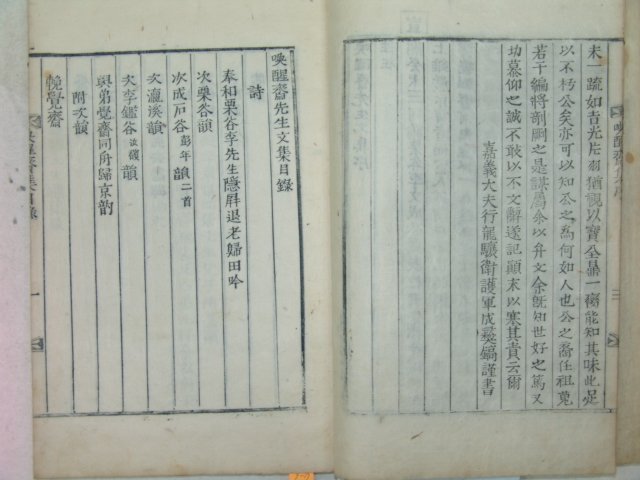 未一疏如吉光片羽猶覩以寶全鼎一臠能知其味此足
以不朽公矣亦可以知公之爲何如人也公之裔任祖蒐
若干編將剞劂之是謀屬余以弁文余旣知世好之篤又
切慕仰之誠不敢以不文辭遂記顚末以塞其責云爾
嘉義大夫行龍驤衛護軍成彛鎬謹書
喚醒齋先生文集目錄
詩
奉和栗谷李先生隱屛退老歸田吟
次栗谷韻
次成石谷彭年韻二首
次瀛溪韻
次李鑑谷汝礥韻
與弟覺齋同舟歸京韵
附次韻
挽賢齋
喚醒齋集目錄
一
三